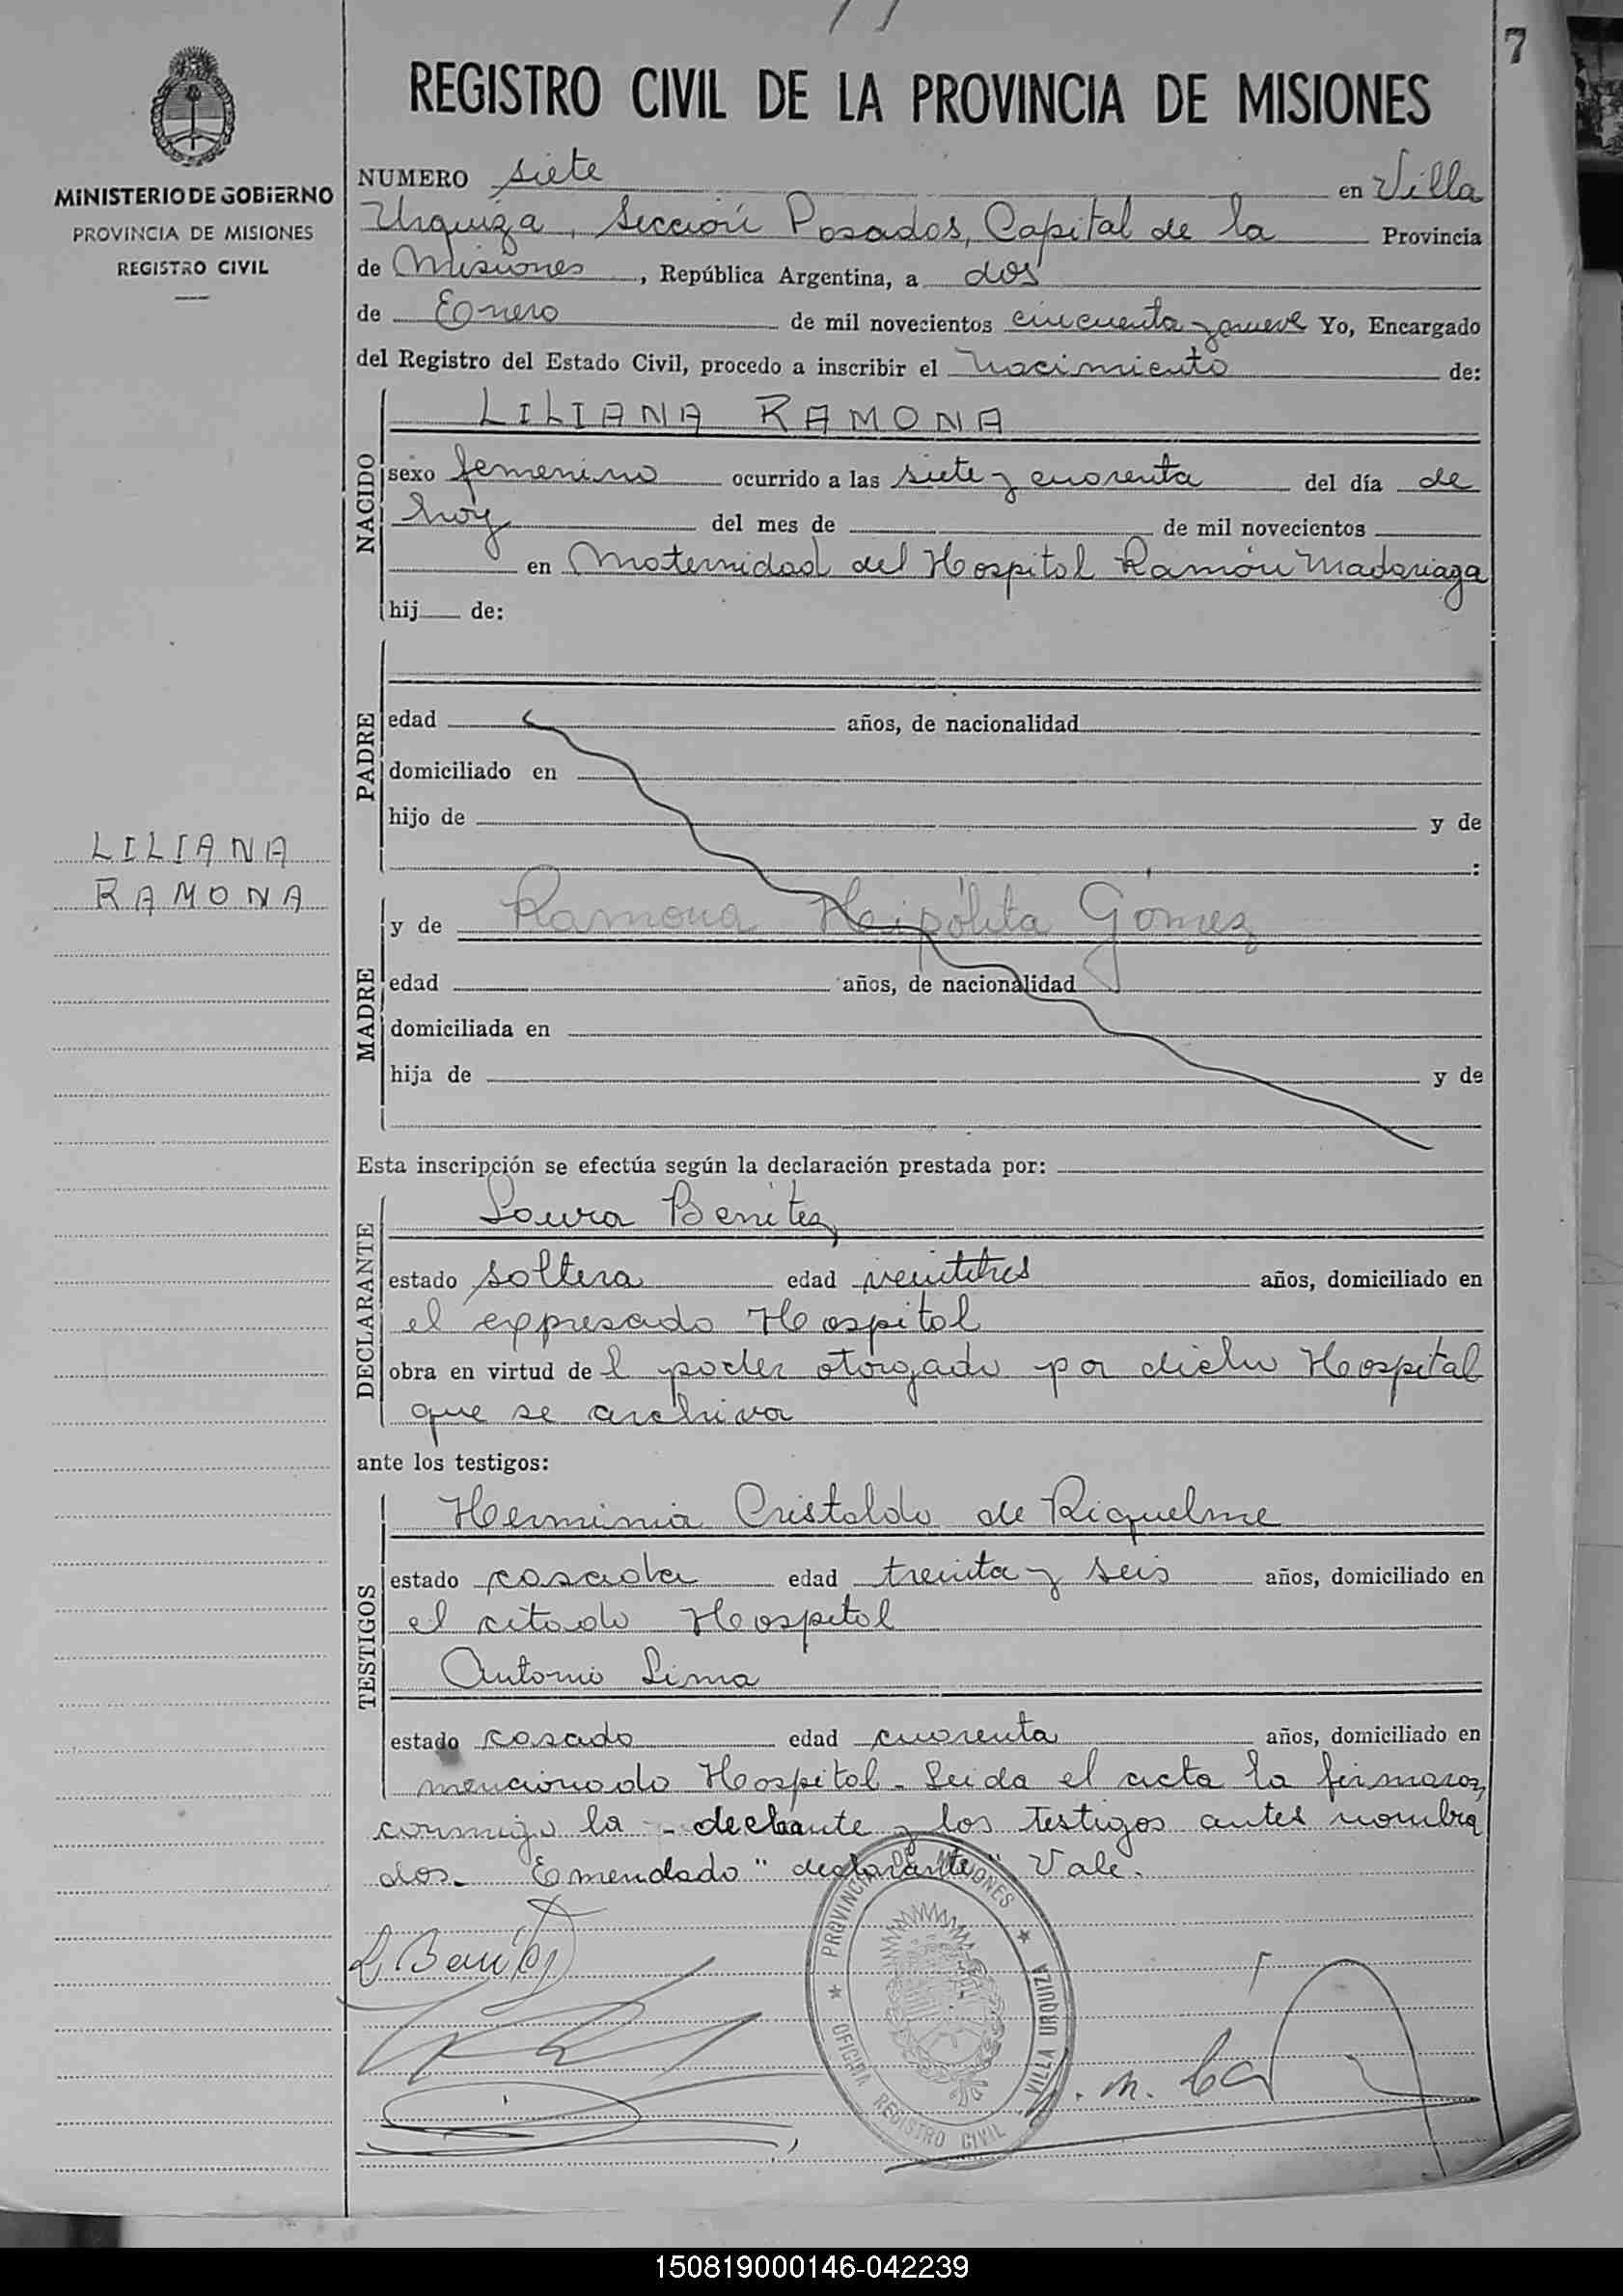 7
MINISTERIO DE GOBIERNO
PROVINCIA DE MISIONES
REGISTRO CIVIL
REGISTRO CIVIL DE LA PROVINCIA DE MISIONES
NUMERO siete en Villa
Urquiza, Sección Posadas, Capital de la Provincia
de Misiones, República Argentina, a dos
de Enero de mil novecientos cincuenta y nueve Yo, Encargado
del Registro del Estado Civil, procedo a inscribir el nacimiento de:
NACIDO
LILIANA RAMONA
sexo femenino ocurrido a las siete y cuarenta del día de
hoy del mes de de mil novecientos
en Maternidad del Hospital Ramón Madariaga
hij de:
PADRE
edad años, de nacionalidad
domiciliado en
hijo de y de
:
LILIANA
RAMONA
MADRE
y de Ramona Hipólita Gómez
edad años, de nacionalidad
domiciliada en
hija de y de
Esta inscripción se efectúa según la declaración prestada por:
DECLARANTE
Laura Benitez
estado soltera edad veintitres años, domiciliado en
el expresado Hospital
obra en virtud de l poder otorgado por dicho Hospital
que se archiva
ante los testigos:
TESTIGOS
Herminia Cristaldo de Riquelme
estado casada edad treinta y seis años, domiciliado en
el citado Hospital
Antonio Lima
estado casado edad cuarenta años, domiciliado en
mencionado Hospital - Leida el acta la firmaron
conmigo la - declarante y los testigos antes nombra
dos. Emendado "declarante" Vale.
L Benitez
PROVINCIA DE MISIONES
OFICINA REGISTRO CIVIL
VILLA URQUIZA
150819000146-042239